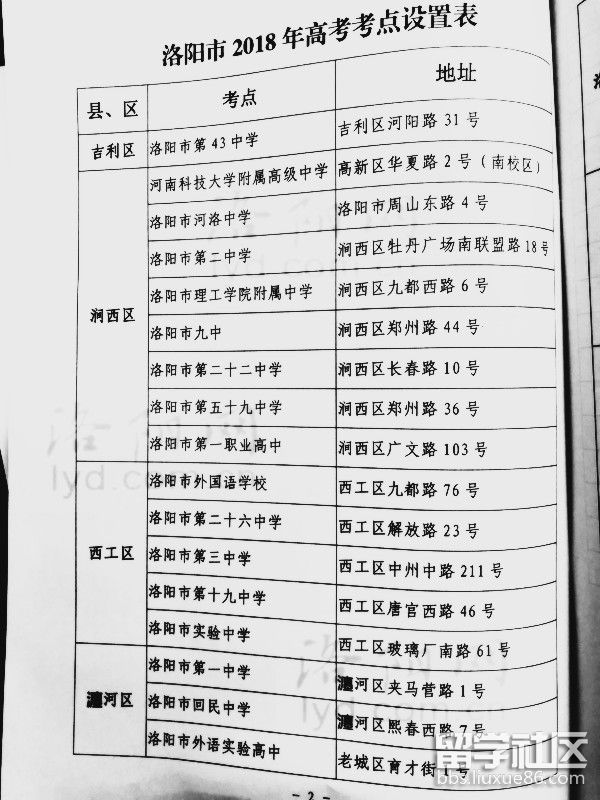 洛阳市 2018 年高考考点设置表
县、区 考点 地址
吉利区 洛阳市第 43 中学 吉利区河阳路 31 号
河南科技大学附属高级中学 高新区华夏路 2 号（南校区）
洛阳市河洛中学 洛阳市周山东路 4 号
洛阳市第二中学 涧西区牡丹广场南联盟路 18 号
洛阳市理工学院附属中学 涧西区九都西路 6 号
涧西区 洛阳市九中 涧西区郑州路 44 号
洛阳市第二十二中学 涧西区长春路 10 号
洛阳市第五十九中学 涧西区郑州路 36 号
洛阳市第一职业高中 涧西区广文路 103 号
洛阳市外国语学校 西工区九都路 76 号
洛阳市第二十六中学 西工区解放路 23 号
西工区 洛阳市第三中学 西工区中州中路 211 号
洛阳市第十九中学 西工区唐宫西路 46 号
洛阳市实验中学 西工区玻璃厂南路 61 号
洛阳市第一中学 瀍河区夹马营路 1 号
瀍河区 洛阳市回民中学 瀍河区熙春西路 7 号
洛阳市外语实验高中 老城区育才街 号
- 2 -
留学社区
bbs.liuxue86.com